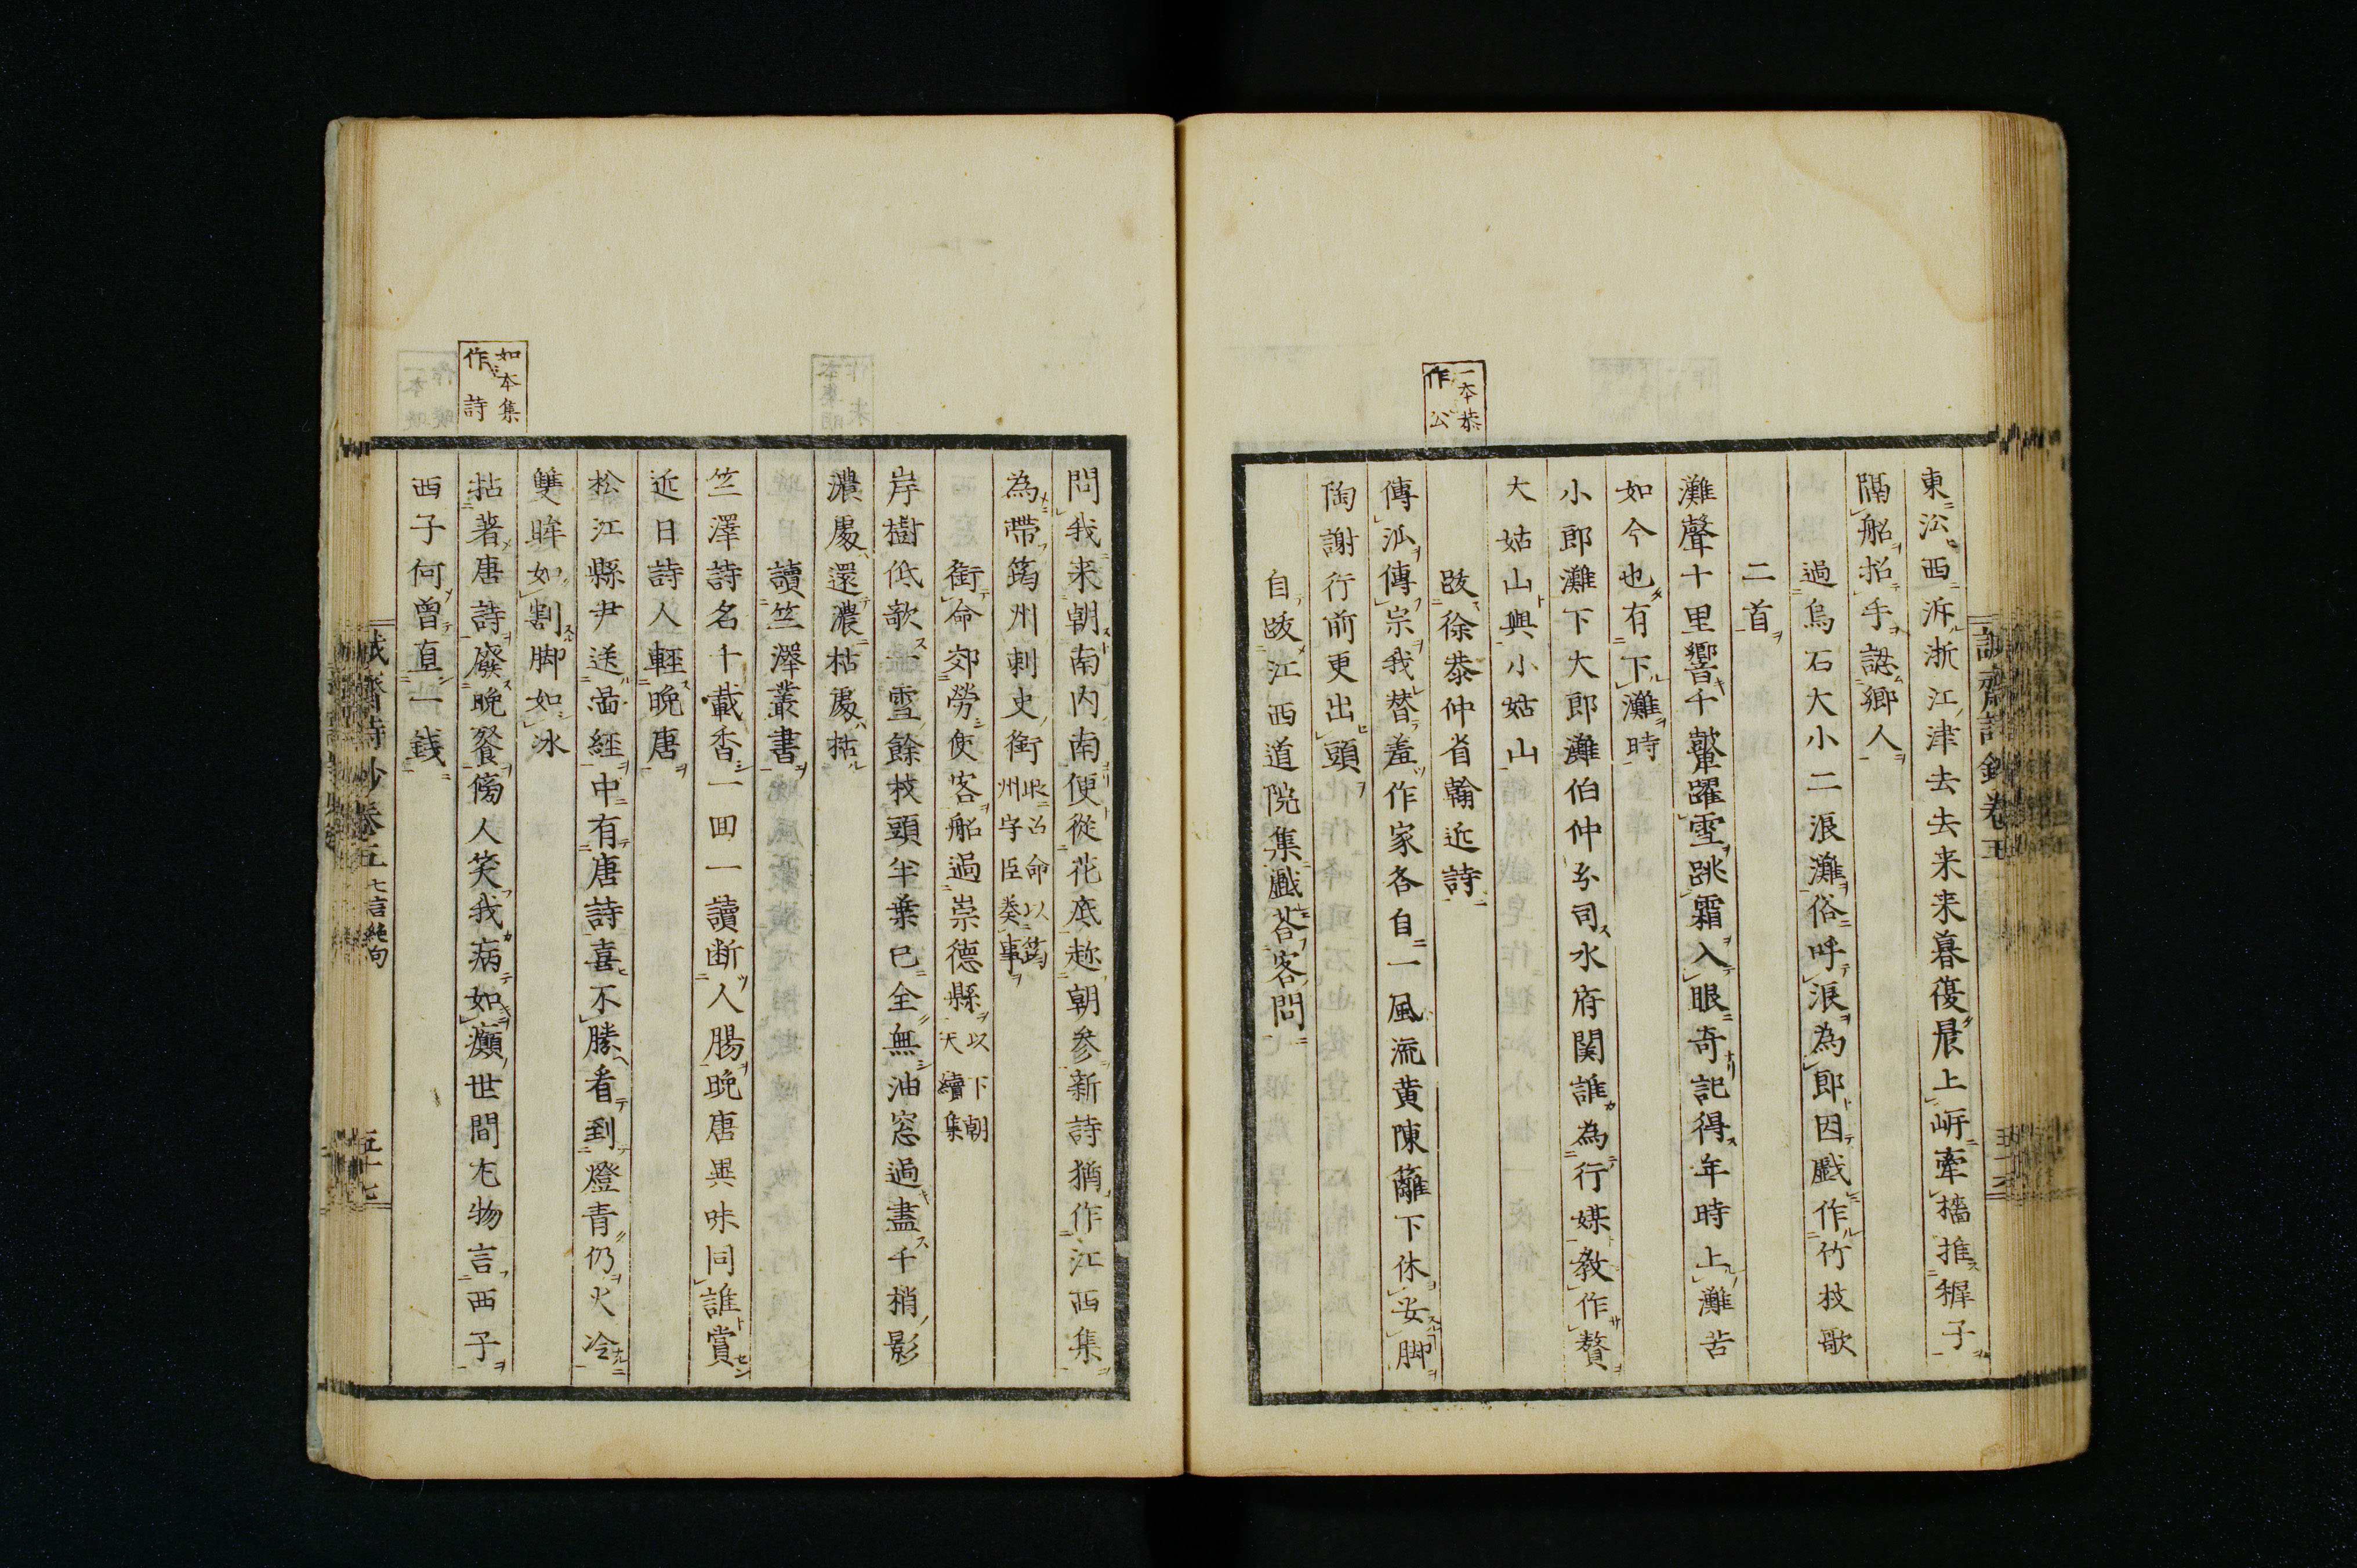 東㳂西泝浙江津去去来来暮復晨上岍牽檣推稺子
隔船招手認郷人
過烏石大小二浪灘俗呼浪為郎因戯作竹枝歌
二首
灘聲十里響千鼙躍雪跳霜入眼奇記得年時上灘苦
如今也有下灘時
小郎灘下大郎灘伯仲分司水府関誰為行媒教作贅
大姑山與小姑山
一本恭
作公
跋徐恭仲省翰近詩
傳泒傳宗我替羞作家各自一風流黄陳籬下休安脚
陶謝行前更出頭
自跋江西道院集戯答客問
問我来朝南内南便從花底趂朝参新詩猶作江西集
為帶筠州刺史銜
是日召命以筠
州守臣奏事
銜命郊勞使客船過崇德縣
以下朝
天續集
岸樹低欹一雪餘枝頭半葉已全無油窓過盡千梢影
濃處還濃枯處枯
讀笠澤叢書
笠澤詩名千載香一回一讀断人腸晩唐異味同誰賞
近日詩人輕晩唐
松江縣尹送圖經中有唐詩喜不勝看到燈青仍火冷
雙眸如割脚如冰
如本集
作詩
拈著唐詩廢晩餐傍人笑我病如癲世間尤物言西子
西子何曾直一錢
誠齋詩鈔卷五
七言絶句
五十七